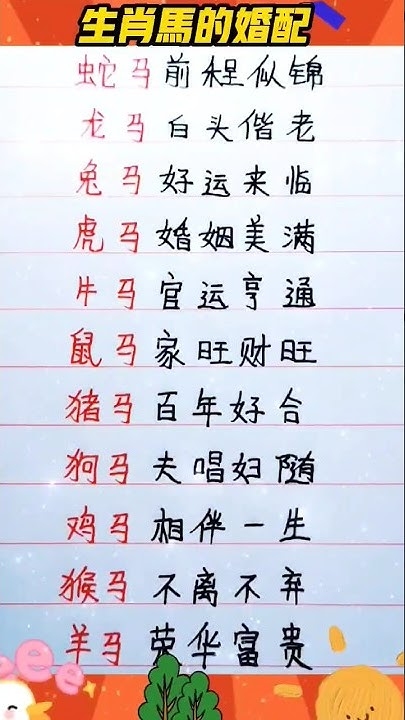 生肖馬的婚配
蛇马前程似锦
龙马白头偕老
兔马好运来临
虎马婚姻美满
牛马官运亨通
鼠马家旺财旺
猪马百年好合
狗马夫唱妇随
鸡马相伴一生
猴马不离不弃
羊马荣华富贵